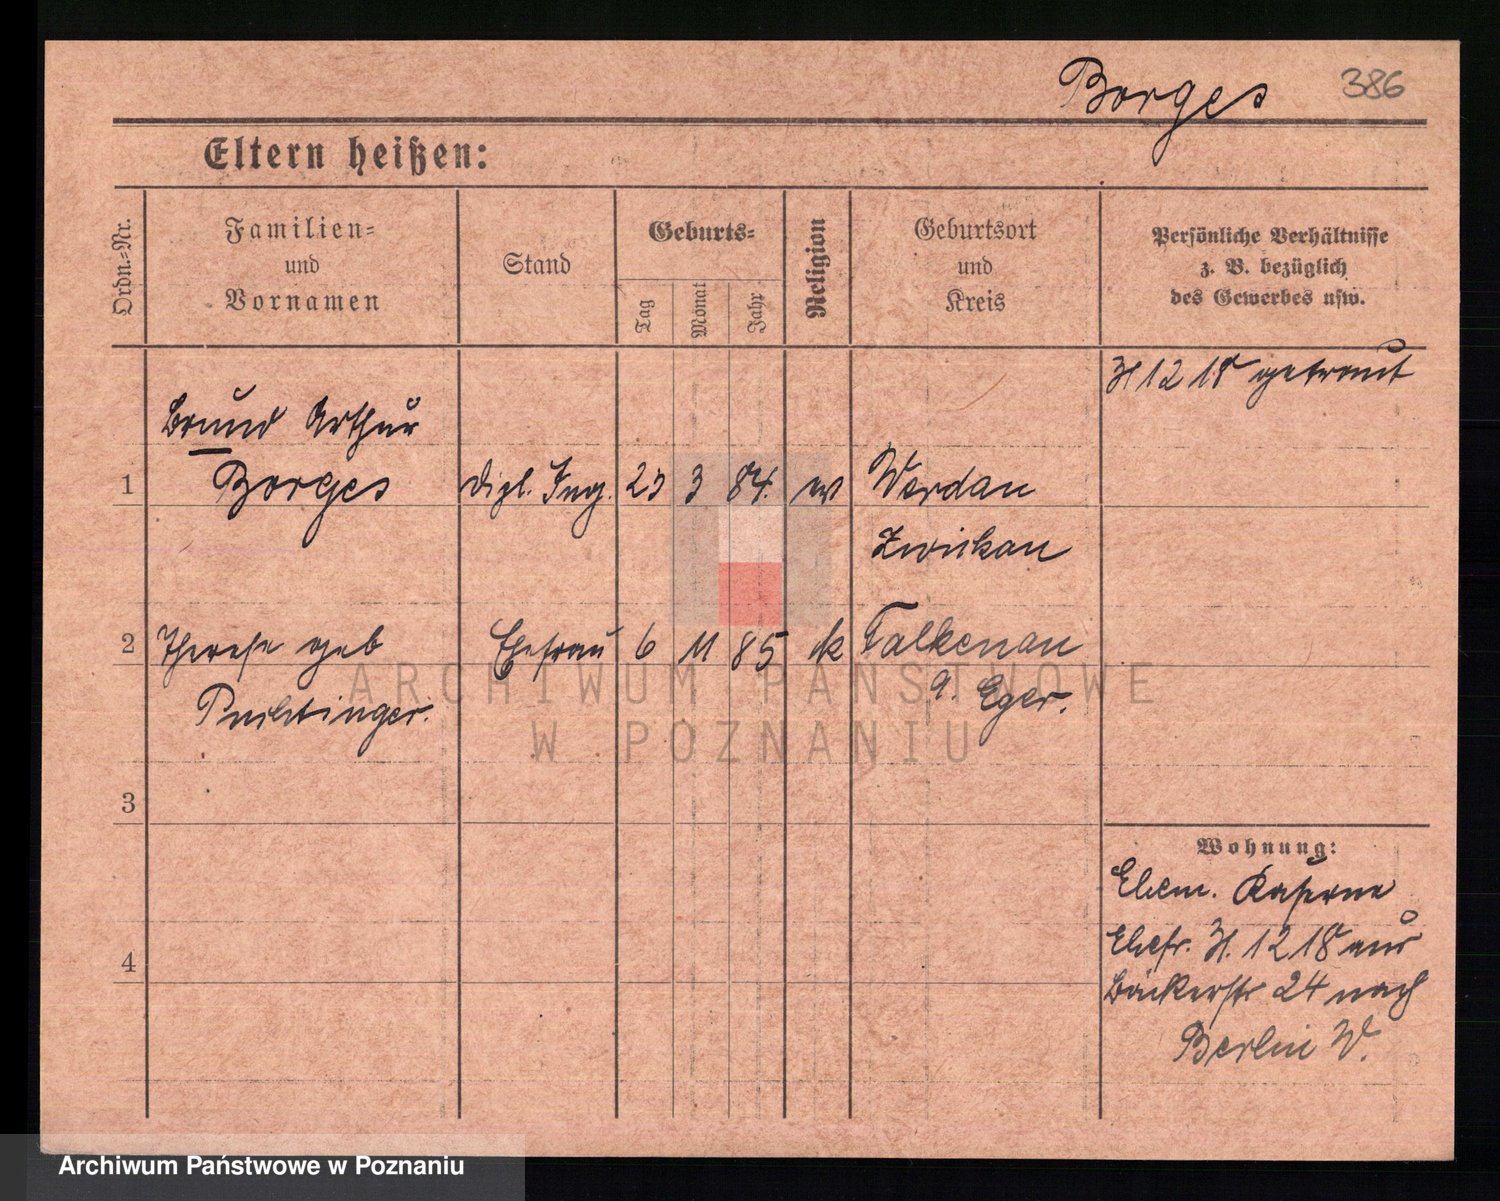 Borges 386
Eltern heißen:
Ordn.-Nr.
Familien-
und
Vornamen
Stand
Geburts-
Tag
Monat
Jahr
Religion
Geburtsort
und
Kreis
Persönliche Verhältnisse
z. B. bezüglich
des Gewerbes usw.
12 18 getraut
Arthur
1 Borges Dipl. Ing. 23 3 84. ev Werdau
Zwickau
2 Therese geb Ehefrau 6 11 85 k Falkenau
a. Eger.
3
Wohnung:
Kaserne
Ehefr. 12 18 aus
4
Bäckerstr 24 nach
Berlin W.
ARCHIWUM PAŃSTWOWE
W POZNANIU
Archiwum Państwowe w Poznaniu